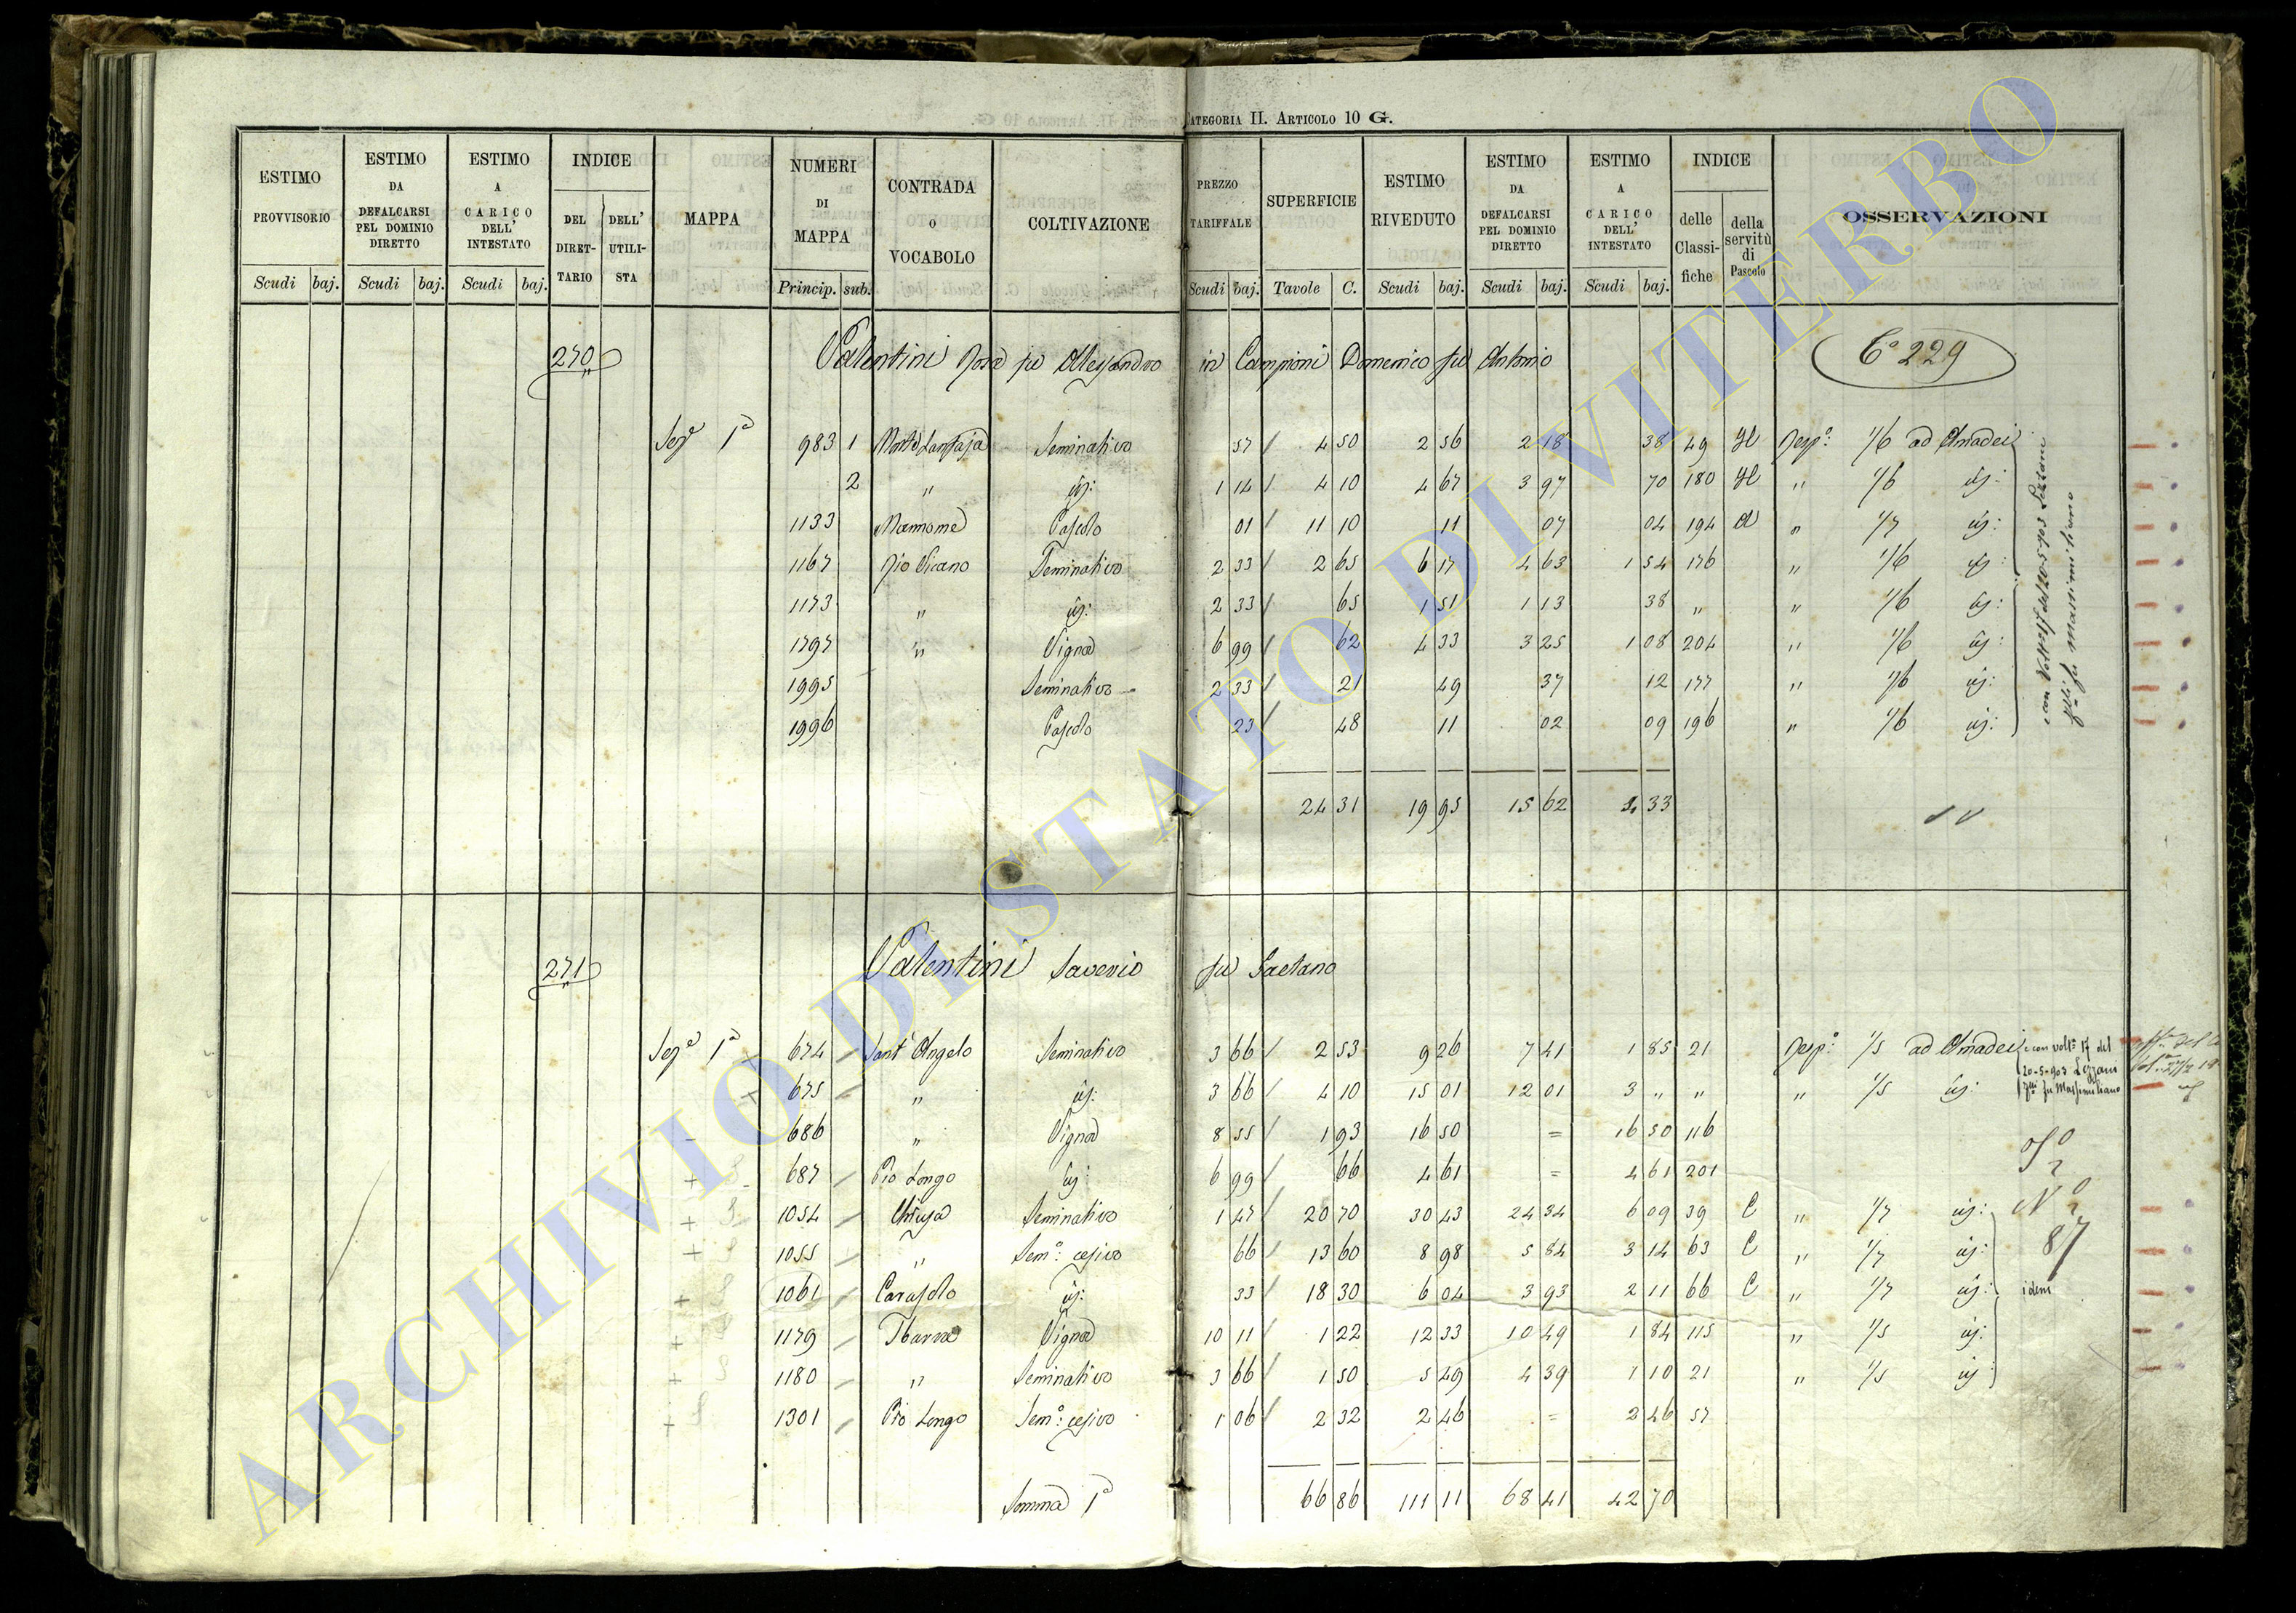 CATEGORIA II. ARTICOLO 10 G.
ESTIMO PROVVISORIO Scudi baj. ESTIMO DA DEFALCARSI PEL DOMINIO DIRETTO Scudi baj. ESTIMO A CARICO DELL' INTESTATO Scudi baj. INDICE DEL DIRETTARIO DELL' UTILISTA MAPPA NUMERI DI MAPPA Princip. sub. CONTRADA O VOCABOLO COLTIVAZIONE PREZZO TARIFFALE Scudi baj. SUPERFICIE Tavole C. ESTIMO RIVEDUTO Scudi baj. ESTIMO DA DEFALCARSI PEL DOMINIO DIRETTO Scudi baj. ESTIMO A CARICO DELL' INTESTATO Scudi baj. INDICE delle Classifiche della servitù di Pascolo OSSERVAZIONI
270 Valentini Rosa fu Alessandro in Campioni Domenico fu Antonio Ca 229
Seze 1a 983 1 Seminativo 57 4 50 2 56 2 18 38 49 Risp: 1/6 ad Amadei
2 " id: 1 14 4 10 4 67 3 97 70 180 " 1/6 id:
1133 Mammome Pascolo 01 11 10 11 07 04 194 A " 1/7 id:
1167 Rio Vicano Seminativo 2 33 2 65 6 17 4 63 1 54 176 " 1/6 id:
1173 " id: 2 33 65 1 51 1 13 38 " " 1/6 id:
1797 " Vigna 6 99 62 4 33 3 25 1 08 204 " 1/6 id:
1995 Seminativo 2 33 21 49 37 12 177 " 1/6 id:
1996 Pascolo 23 48 11 02 09 196 " 1/6 id:
e con Volt 17 del 20-5-903 Lezzani
flli fu Massimiliano
24 31 19 95 15 62 4 33
271 Valentini Saverio fu Gaetano
Seze 1a 674 Sant' Angelo Seminativo 3 66 2 53 9 26 7 41 1 85 21 Risp: 1/5 ad Amadei e con volta 17 del
20-5-903 Lezzani
675 " id: 3 66 4 10 15 01 12 01 3 " " " 1/5 id: flli fu Massimiliano
686 " Vigna 8 55 1 93 16 50 = 16 50 116
687 Pio Longo id 6 99 66 4 61 = 4 61 201
1054 Chiusa Seminativo 1 47 20 70 30 43 24 34 6 09 39 C " 1/7 id:
1055 " Semo: cesivo 66 13 60 8 98 5 84 3 14 63 C " 1/7 id: 87
1061 id: 33 18 30 6 04 3 93 2 11 66 C " 1/7 id: idem
1179 Sbarra Vigna 10 11 1 22 12 33 10 49 1 84 115 " 1/5 id:
1180 " Seminativo 3 66 1 50 5 49 4 39 1 10 21 " 1/5 id
1301 Pio Longo Semo: cesivo 1 06 2 32 2 46 = 2 46 57
Somma 1a 66 86 111 11 68 41 42 70
ARCHIVIO DI STATO DI VITERBO